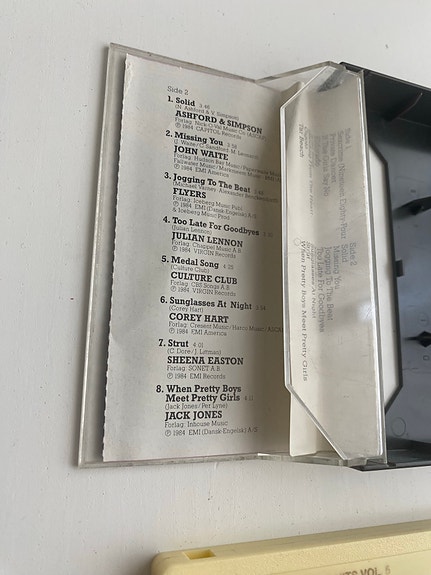 Side 2
1. Solid 3:46
(N. Ashford & V. Simpson)
ASHFORD & SIMPSON
Forlag: Nick-O-Val Music Co. (ASCAP)
℗ 1984 CAPITOL RECORDS
2. Missing You 3:58
(J. Waite/C. Sandford/M. Leonard)
JOHN WAITE
Forlag: Hudson Bay Music/Paperwaite Music
Fallwater Music/Markmeem Music
℗ 1984 EMI America
3. Jogging To The Beat
(Michael Varney/Alexander
FLYERS
Forlag: Iceberg Music Publ.
℗ 1984 EMI (Dansk-Engelsk) A/S
& Iceberg Music Prod
4. Too Late For Goodbyes
(Julian Lennon)
JULIAN LENNON
Forlag: Chappel Music A.B.
℗ 1984 VIRGIN Records
5. Medal Song 4:25
(Culture Club)
CULTURE CLUB
Forlag: CBS Songs A.B
℗ 1984 VIRGIN Records
6. Sunglasses At Night
(Corey Hart)
COREY HART
Forlag: Cresent Music/Harco Music/ASCAP
℗ 1984 EMI America
7. Strut 4:01
(C. Dore/J. Littman)
SHEENA EASTON
Forlag: SONET A.B.
℗ 1984 EMI Records
8. When Pretty Boys
Meet Pretty Girls 4:11
(Jack Jones/Per Lyne)
JACK JONES
Forlag: Inhouse Music
℗ 1984 EMI (Dansk-Engelsk) A/S
Side 1
Side 2
Solid
Missing You
Jogging To The Beat
Too Late For Goodbyes
Sunglasses At Night
When Pretty Boys Meet Pretty Girls
VOL. 5